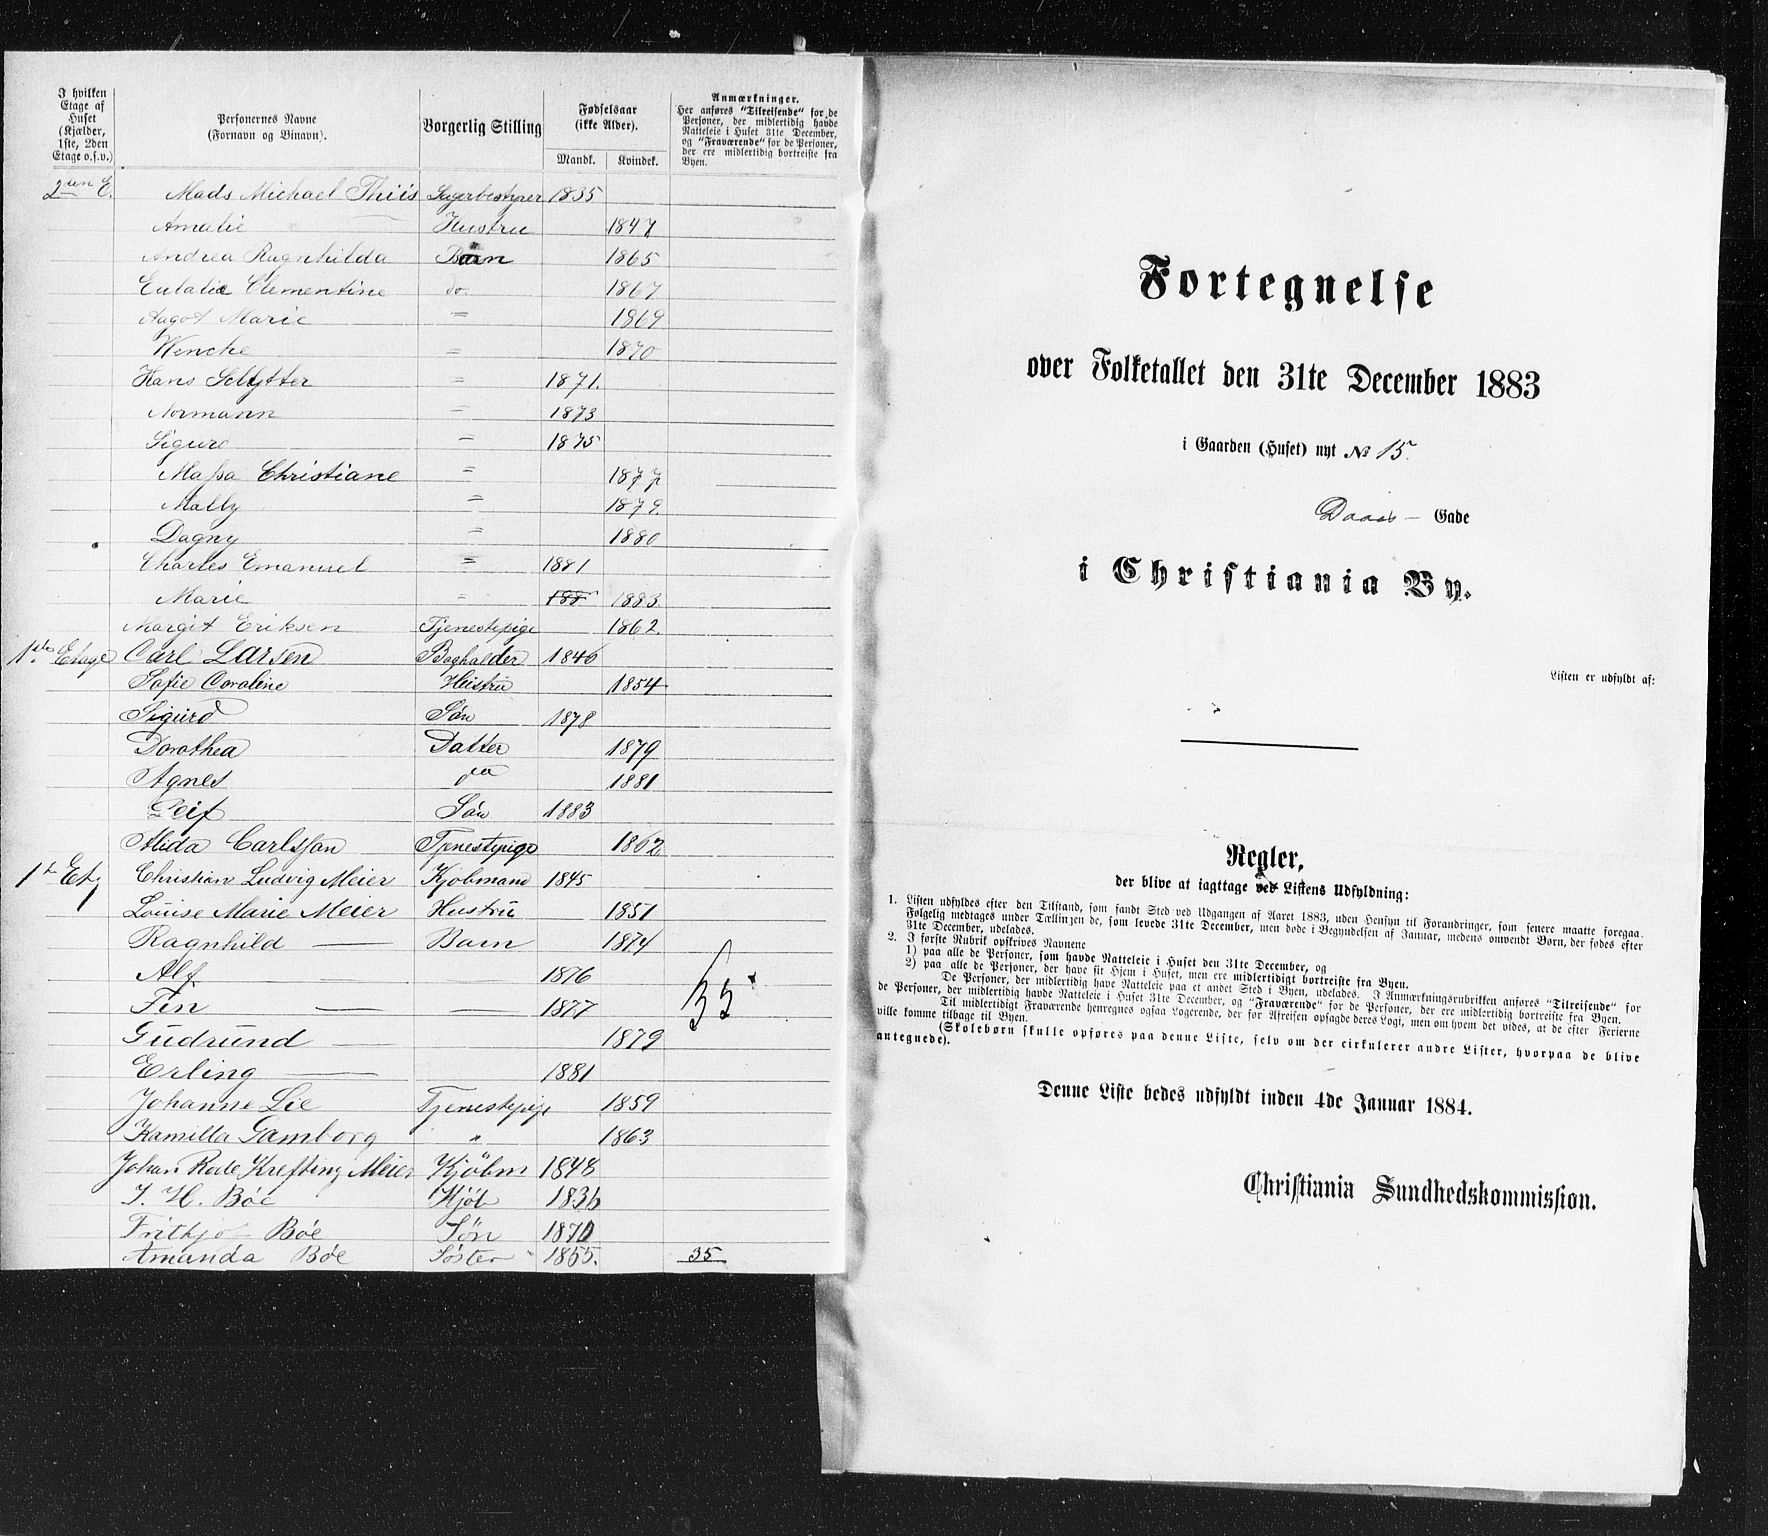 I hvilken Etage af Huset (Kjælder, 1ste, 2den Etage o.s.v.)
Personernes Navne (Fornavn og Binavn).
Borgerlig Stilling
Fødselsaar (ikke Alder).
Mandk. Kvindek.
Anmærkninger.
Her anføres "Tilreisende" for de Personer, der midlertidig havde Natteleie i Huset 31te December, og "Fraværende" for de Personer, der ere midlertidig bortreiste fra Byen.
2den E. Mads Michael Thiis Sagerbestyrer 1835
Amalie Hustru 1847
Andrea Ragnhilda Barn 1865
Eulalie Clementine do. 1867
Aagot Marie " 1869
Wenche " 1870
Hans Schytter " 1871.
Normann " 1873
Sigurd " 1875
Massa Christiane " 1877
Mally " 1879.
Dagny " 1880
Charles Emanuel " 1881
Marie " 188 1883.
Margit Eriksen Tjenestepige 1862.
1ste Etage Carl Larsen Bogholder 1846
Sofie Caroline Hustru 1854
Sigurd Søn 1878
Dorothea Datter 1879
Agnes do 1881
Leif Søn 1883
Alida Carlsson Tjenestepige 1862
1ste Etg Christian Ludvig Meier Kjøbmand 1845
Louise Marie Meier Hustru 1851
Ragnhild — Barn 1874
Alf 1876
Fin — — 1877
Gudrund — 1879
Erling — 1881
Johanne Lie Tjenestepige 1859
Kamilla Gamborg " 1863
Johan Rode Krefting Meier Kjøbm 1848
J. H. Bóe Kjøb 1836
Frithjof Bóe Søn 1870
Amanda Bóe Søster 1855. 35
35
Fortegnelse
over Folketallet den 31te December 1883
i Gaarden (Huset) nyt № 15.
Daas— Gade
i Christiania By.
Listen er udfyldt af:
Regler,
der blive at iagttage ved Listens Udfyldning:
1. Listen udfyldes efter den Tilstand, som fandt Sted ved Udgangen af Aaret 1883, uden Hensyn til Forandringer, som senere maatte foregaa.
Følgelig medtages under Tællingen de, som levede 31te December, men døde i Begyndelsen af Januar, medens omvendt Børn, der fødes efter
31te December, udelades.
2. I første Rubrik opskrives Navnene
1) paa alle de Personer, som havde Natteleie i Huset den 31te December, og
2) paa alle de Personer, der have sit Hjem i Huset, men ere midlertidigt bortreiste fra Byen.
De Personer, der midlertidig have Natteleie paa et andet Sted i Byen, udelades. I Anmærkningsrubrikken anføres "Tilreisende" for
de Personer, der midlertidig havde Natteleie i Huset 31te December, og "Fraværende" for de Personer, der ere midlertidig bortreiste fra Byen.
Til midlertidigt Fraværende henregnes ogsaa Logerende, der før Afreisen opsagde deres Logi, men om hvem det vides, at de efter Ferierne
ville komme tilbage til Byen.
(Skolebørn skulle opføres paa denne Liste, selv om der cirkulerer andre Lister, hvorpaa de blive
antegnede).
Denne Liste bedes udfyldt inden 4de Januar 1884.
Christiania Sundhedskommission.